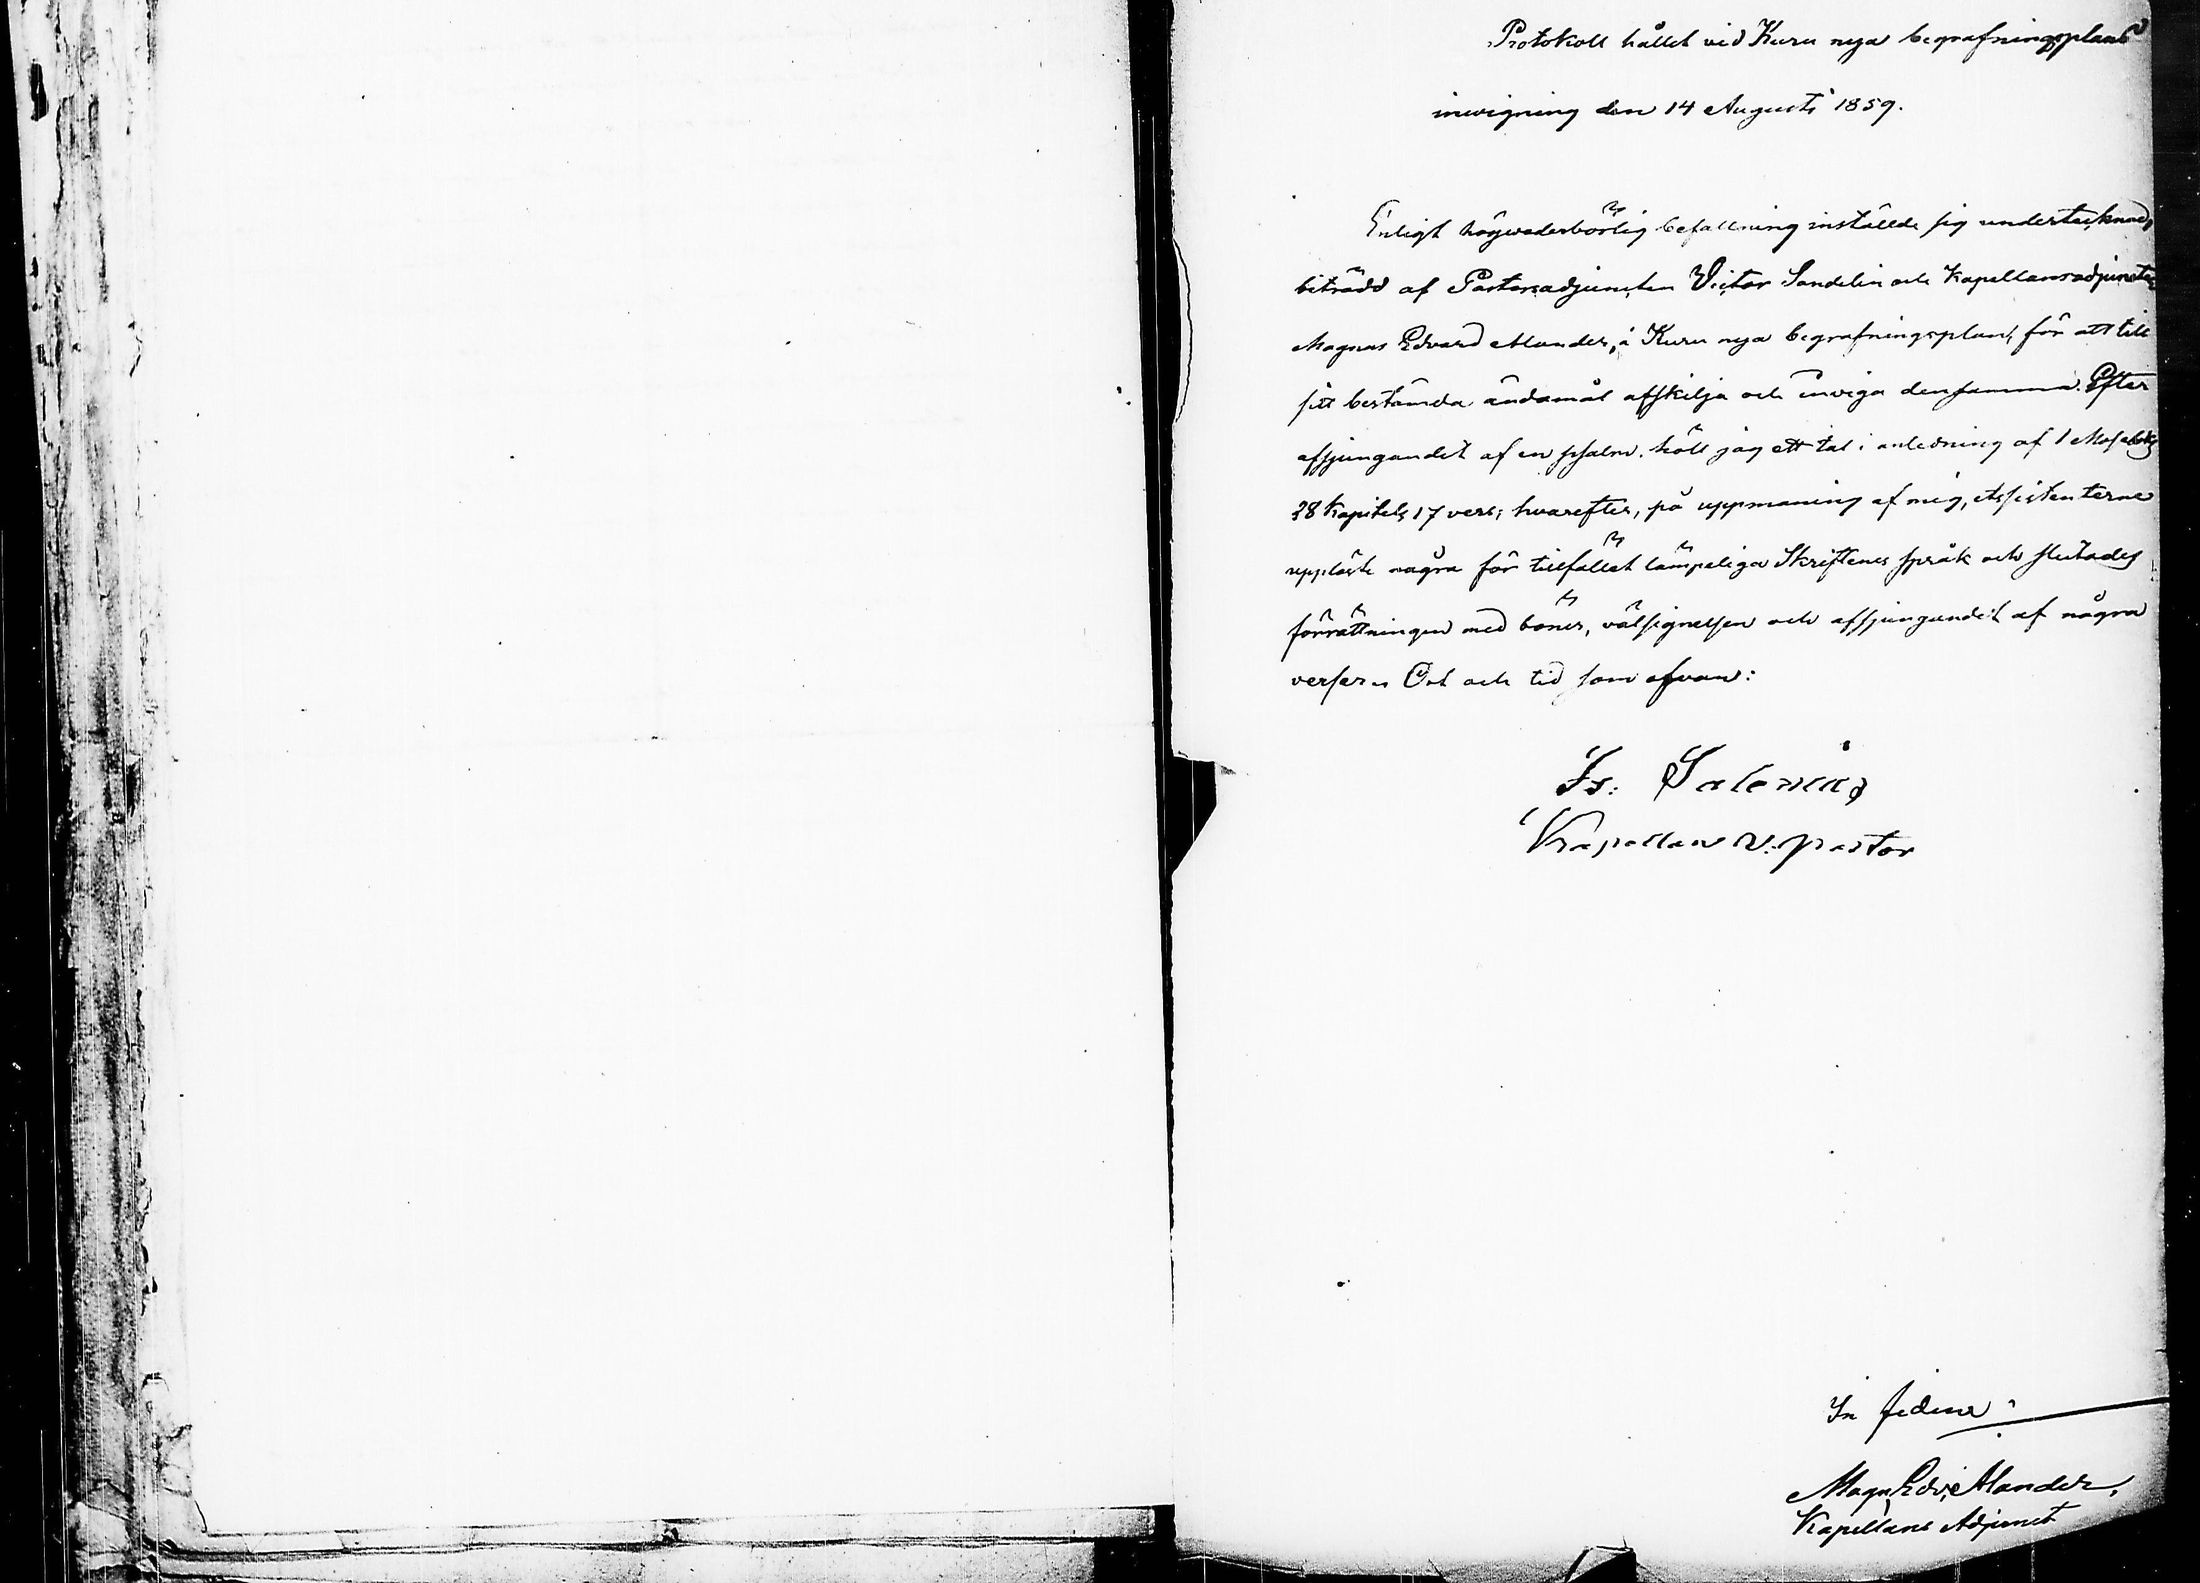 Protokoll hållet vid Kuru nya begrafningsplans
invigning den 14 Augusti 1859.
Enligt högvederbörlig befallning inställde sig undertecknad,
biträdd af Pastorsadjuncten Victor Sandelin och Kapellansadjuncten
Magnus Edvard Alander, å Kuru nya begrafningsplan, för att till
sitt bestämda ändamål afskilja och inviga densamma. Efter
afsjungandet af en psalm, höll jag ett tal i anledning af 1 Moseboks
28 Kapitels 17 vers; hvarefter, på uppmaning af mig, Assistenterne
uppläste några för tillfället lämpeliga Skriftenes språk och slutades
förrättningen med böner, välsignelsen och afsjungandet af några
verser. Ort och tid som ofvan:
Is: Salenius
Kapellan V. pastor
In fidem:
Magn. Edv. Alander.
Kapellans Adjunct